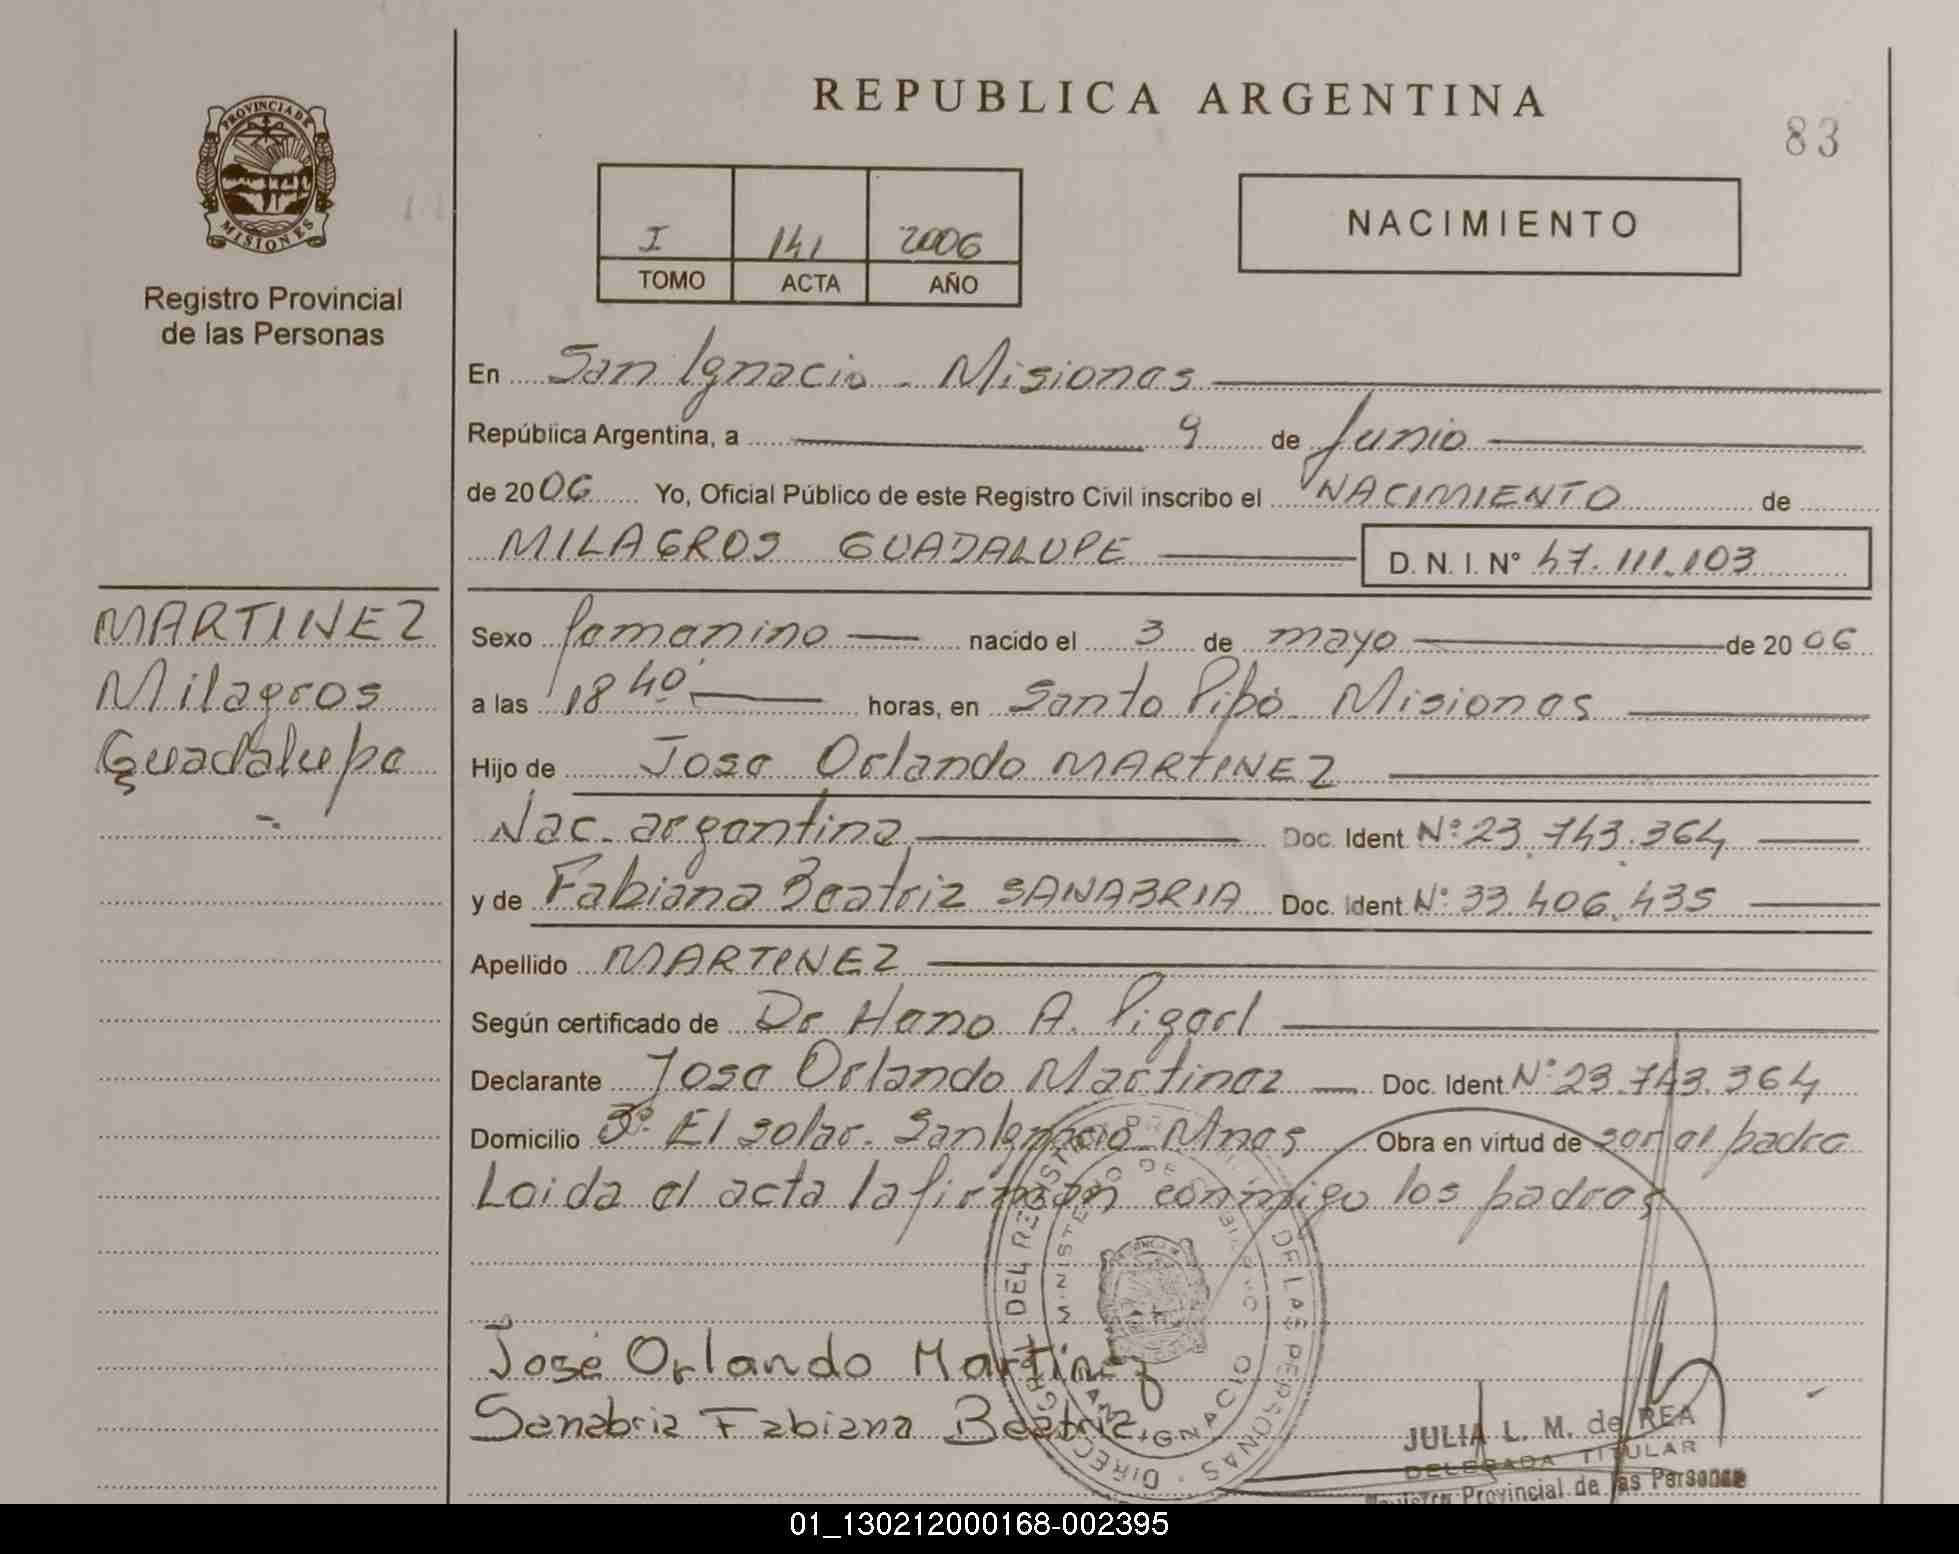 REPUBLICA ARGENTINA
83
PROVINCIA DE
MISIONES
Registro Provincial
de las Personas
I 141 2006
TOMO ACTA AÑO
NACIMIENTO
En San Ignacio - Misiones
República Argentina, a 9 de Junio
de 2006 Yo, Oficial Público de este Registro Civil inscribo el NACIMIENTO de
MILAGROS GUADALUPE D. N. I. N° 47.111.103
MARTINEZ
Milagros
Guadalupe
Sexo femenino nacido el 3 de mayo de 2006
a las 18 40' horas, en Santo Pipó Misiones
Hijo de Jose Orlando MARTINEZ
Nac. argentina Doc. Ident. N° 23.743.364
y de Fabiana Beatriz SANABRIA Doc. Ident. N° 33.406.435
Apellido MARTINEZ
Según certificado de Dr A.
Declarante Jose Orlando Martinez Doc. Ident. N° 23.743.364
Domicilio Bº El solar. San Ignacio - Mnes Obra en virtud de ser el padre
Leida el acta la firman conmigo los padres
José Orlando Martinez
Sanabria Fabiana Beatriz
DEL REGISTRO DE LAS PERSONAS
MINISTERIO DE GOBIERNO
IGNACIO
JULIA L. M. de REA
DELEGADA TITULAR
Registro Provincial de las Personas
01_130212000168-002395